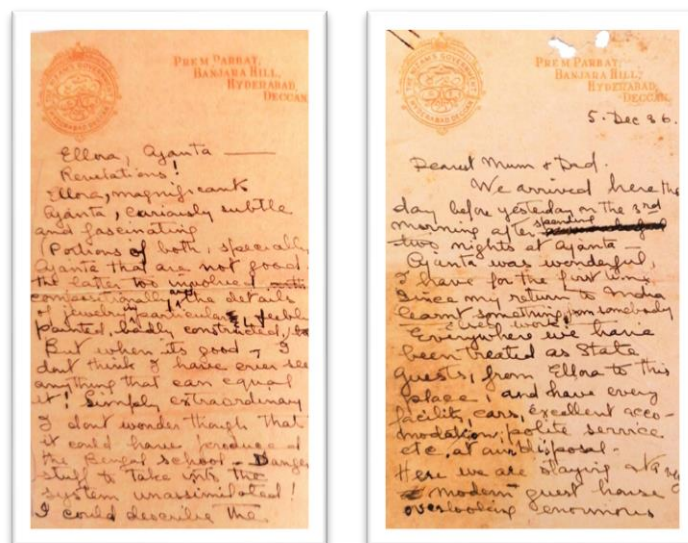 THE NIZAM'S GOVERNMENT
HYDERABAD DECCAN
PREM PARBAT,
BANJARA HILL,
HYDERABAD,
DECCAN
Ellora, Ajanta —
Revelations!
Ellora, magnificant
Ajanta, curiously subtle
and fascinating
(Portions of both, specially
Ajanta that are not good
the latter too involved
compositionally and the details
of jewelry particular feebly
painted, badly constructed,
But when its good, I
dont think I have ever see
anything that can equal
it! Simply extraordinary
I dont wonder though that
it could have produced
the Bengal school. Danger
stuff to take into the
system unassimilated!
I could describe the
THE NIZAM'S GOVERNMENT
HYDERABAD DECCAN
PREM PARBAT,
BANJARA HILL,
HYDERABAD,
DECCAN
5. Dec 36.
Dearest Mum & Dad.
We arrived here the
day before yesterday on the 3rd
morning after spending
two nights at Ajanta —
Ajanta was wonderful,
I have for the first time
since my return to India
learnt something from somebody
else's work!
Everywhere we have
been treated as State
guests, from Ellora to this
place, and have every
facility, cars, excellent acco-
modation, polite service
etc, at our disposal.
Here we are staying at a
modern guest house
overlooking enormous